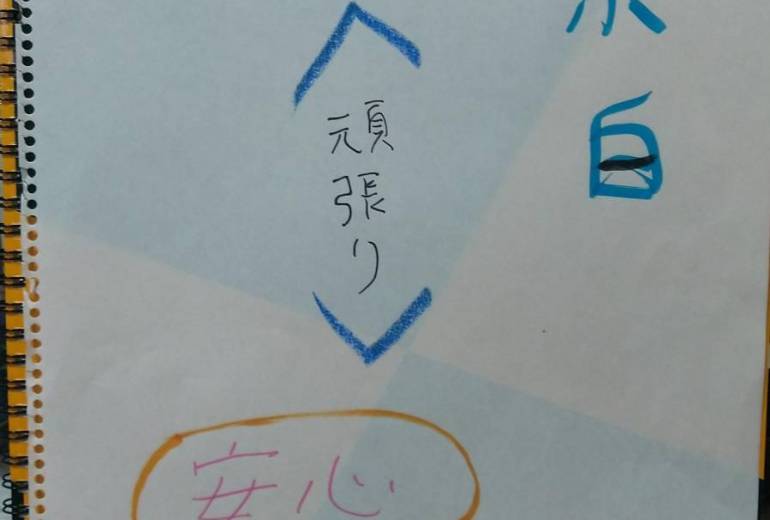 白
〈頑張り〉
安心